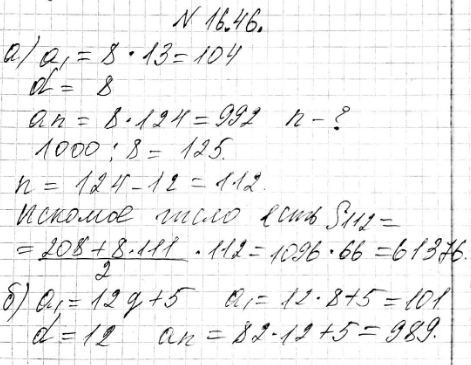 N 16.46.
а) a₁ = 8 · 13 = 104
d = 8
an = 8 · 124 = 992 n – ?
1000 : 8 = 125.
n = 124 – 12 = 112.
Искомое число есть S₁₁₂ =
= (208 + 8 · 111)/2 · 112 = 1096 · 66 = 61376.
б) a₁ = 12q + 5 a₁ = 12 · 8 + 5 = 101
d = 12 an = 82 · 12 + 5 = 989.